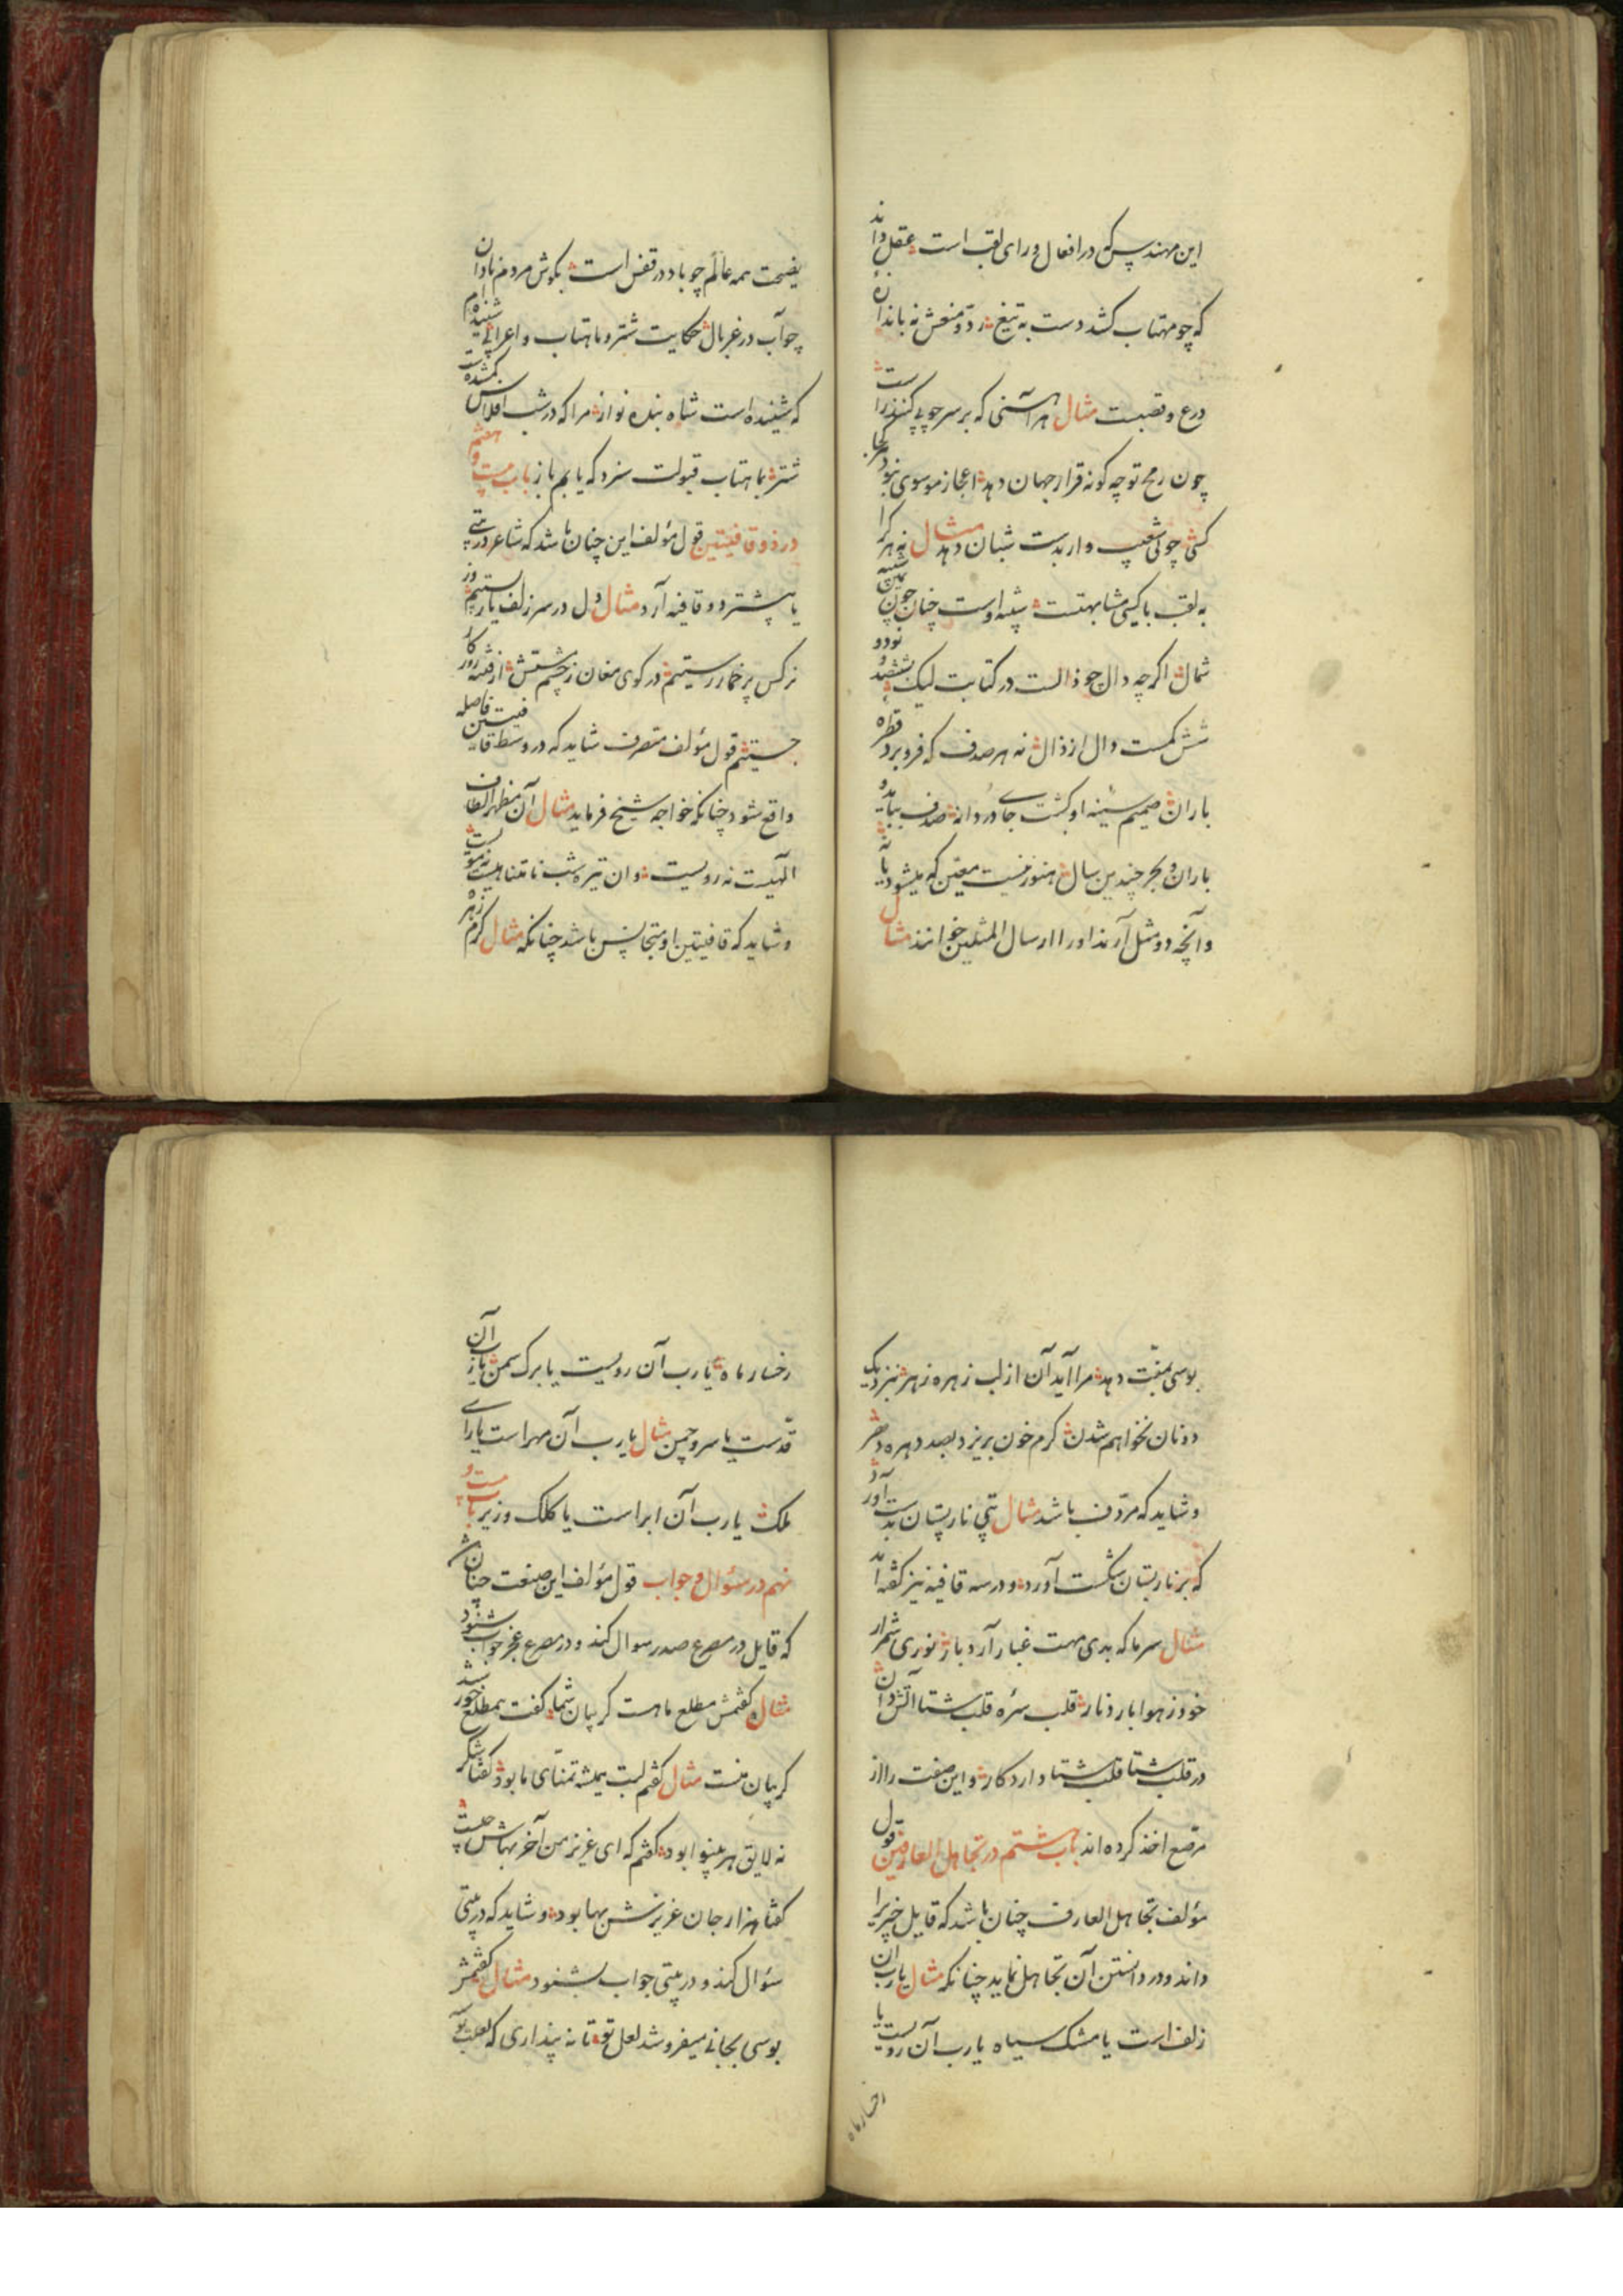 این مهندس که در افعال ورای لقب است عقل داند
که چو مهتاب کشد دست به تیغ
درع و قصبست مثال هر آهنی که بر سر چوبی کنند راست
چون رمح تو چه کونه قرار جهان دهد اعجاز موسوی نبود هر کجا
کسی چوبی شعیب وار بدست شبان دهد مثال نه هر کرا
به لقب با کسی مشابهتست شبیه اوست چنان چون یمین
شمال اکر چه دال چو ذالست در کتابت لیک بششصد و نود و
شش کمست دال از ذال نه هر صدف که فرو برد قطره
باران صمیم سینه او کشت جای دردانه صدف بباید و
باران و بحر چندین سال هنوز نیست معین که میشود یا نه
و آنچه دو مثل آرند او را ارسال المثلین خوانند مثال
نصیحت همه عالم چو باد در قفس است بکوش مردم نادان
چو آب در غربال حکایت شتر و ماهتاب و اعرابی شنیده‌ام
که شنیده است شاه بنده نواز مرا که در شب افلاس کمشدست
شتر بماهتاب قبولت سزد که یابم باز باب بیست و هفتم
در ذو قافیتین قول مؤلف این چنان باشد که شاعر در بیتی
یا بیشتر دو قافیه آرد مثال دل در سر زلف یار بستیم وز
نرکس پر خمار رستیم در کوی مغان ز چشم مستش از فتنه روزکار
جستیم قول مؤلف متصرف شاید که در وسط قافیتین فاصله
واقع شود چنانکه خواجه شیخ فرماید مثال آن مظهر الطاف
الهیست نه رویست وان تیره شب نامتناهیست نه مویست
و شاید که قافیتین او متجانس باشد چنانکه مثال کرم زهر
بوسی بمنت دهد مرا آید آن از لب زهره زهر بنزدیک
دونان نخواهم شدن کرم خون بریزد بصد دهره دهر
و شاید که مردف باشد مثال بتی نار پستان بدست آورد
که بر نار بستان شکست آورد و در سه قافیه نیز کفته‌اند
مثال سرما که بدی مهت غبار آرد باز نوری شمرار
خود ز هوا بارد نار قلب سره قلب شتا آتش دان
در قلب شتا قلب شتا دارد کار و این صفت را از
مرصع اخذ کرده‌اند باب بیست و هشتم در تجاهل العارفین قول
مؤلف تجاهل العارف چنان باشد که قایل چیزی را
داند و در دانستن آن تجاهل نماید چنانکه مثال یارب آن
زلف است یا مشک سیاه یارب آن رویست یا
رخسار ماه
رخسار ماه یارب آن رویست یا برک سمن یارب آن
قدست یا سرو چمن مثال یارب آن مهر است یا رای
ملک یارب آن ابر است یا کلک وزیر باب بیست و
نهم در سؤال و جواب قول مؤلف این صنعت چنان باشد
که قایل در مصرع صدر سوال کند و در مصرع عجز جواب شنود
مثال کفتمش مطلع ماهست کریبان شما کفت بمطلع خورشید
کریبان منست مثال کفتم لبت همیشه تمنای ما بود کفتا شکر
نه لایق هر بینوا بود کفتم که ای عزیز من آخر بهاش چیست
کفتا هزار جان عزیزش بها بود و شاید که در بیتی
سؤال کند و در بیتی جواب بشنود مثال کفتمش
بوسی بجانی میفروشد لعل تو تا نه پنداری که لعلت